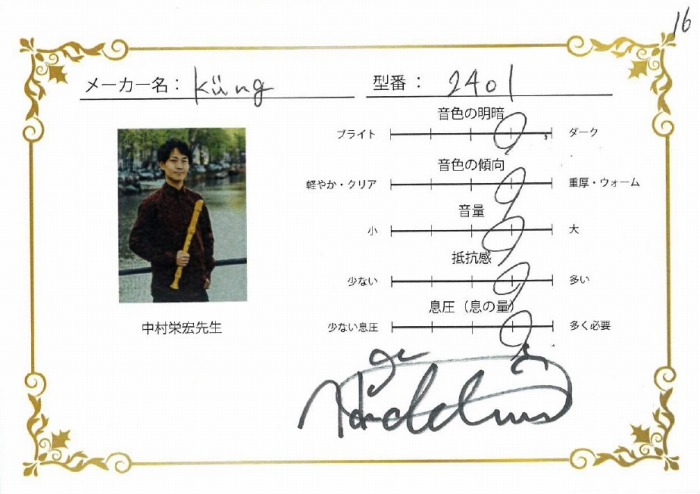 16
メーカー名： Küng 型番： 2401
音色の明暗
ブライト ダーク
音色の傾向
軽やか・クリア 重厚・ウォーム
音量
小 大
抵抗感
少ない 多い
息圧（息の量）
少ない息圧 多く必要
中村栄宏先生